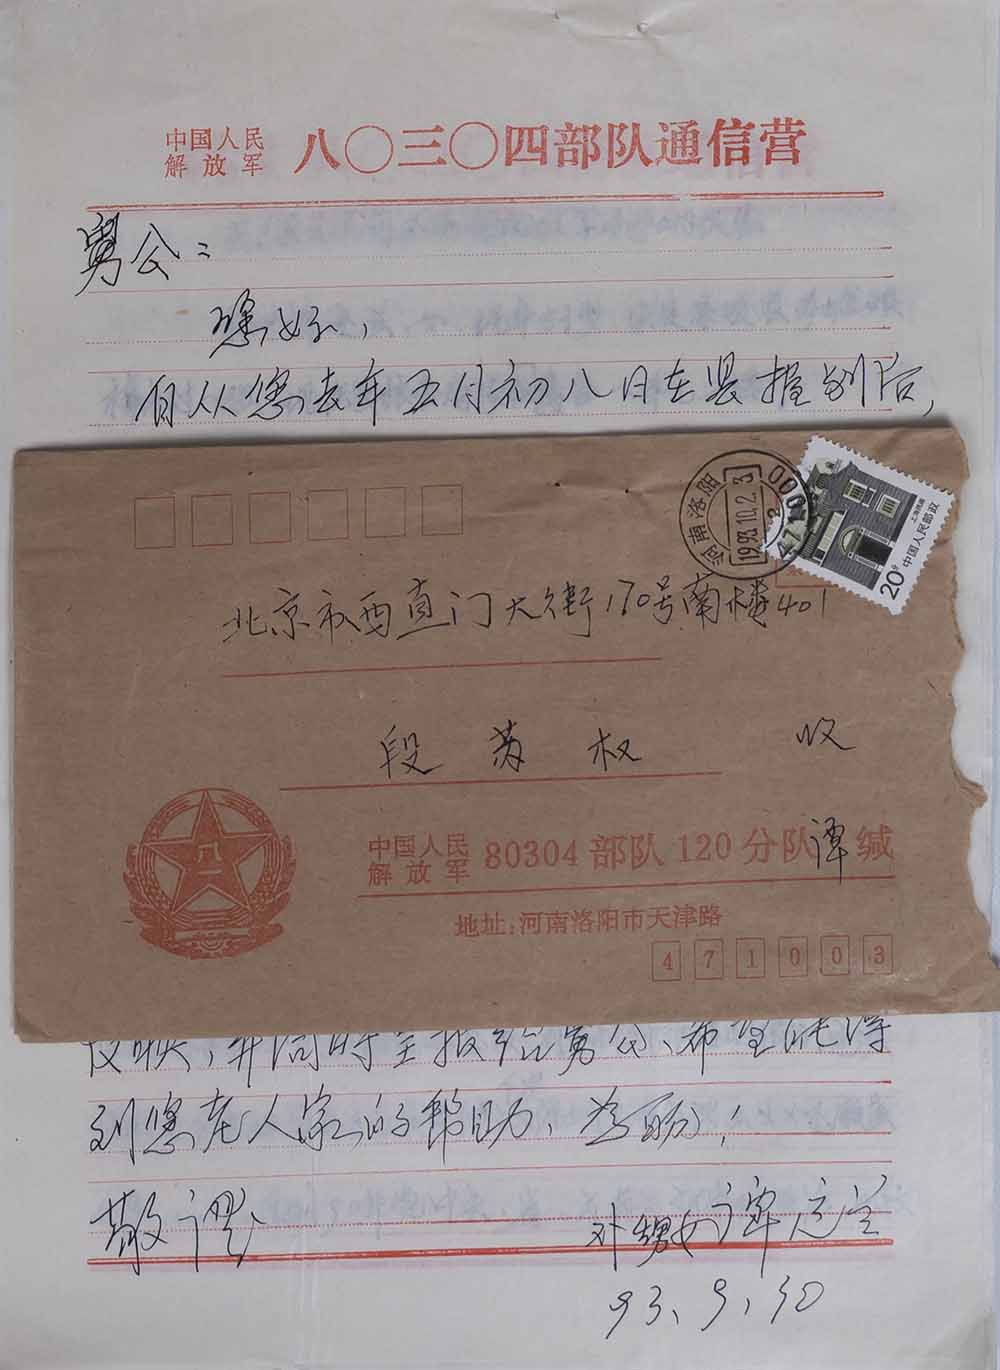 中国人民
解放军
八〇三〇四部队通信营
舅公:
您好,
自从您去年五月初八日在县握别后,
河南洛阳
1993.10.2.3
471000
上海民居
中国人民邮政
20分
北京市西直门大街170号南楼401
段苏权 收
八一
中国人民
解放军
80304部队120分队 谭 缄
地址:河南洛阳市天津路
471003
反映,并同时呈报给舅公、希望能得
到您老人家的帮助、为盼!
敬礼
外甥女 谭
93、9、30